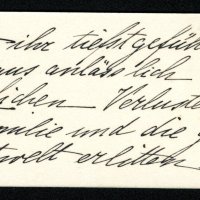 ihr tiefgefüh
aus anlässlich
lichen Verluste
milie und die
twelt erlitten